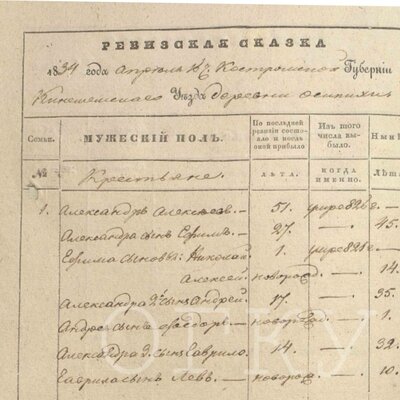 РЕВИЗСКАЯ СКАЗКА
1834 года Апреля Костромской Губерніи
Кинешемскаго Уѣзда деревни
Семьи. МУЖЕСКІЙ ПОЛЪ. По послѣдней ревизіи состояло и послѣ оной прибыло Изъ того числа выбыло. Нынѣ
№ Крестьяне. ЛѢТА. КОГДА ИМЕННО. Лѣта
1. Александръ Алексѣевъ.— 51. умре826г —
Александра сынъ Ефимъ.— 27. — 45.
Ефима сыновья: Николай 1. умре821г —
Алексей. новорожд — 14.
Александра 2й сынъ Андрей 17. — 35.
Андрея сынъ Ѳедоръ.— новорожд. — 1.
Александра 3. сынъ Гаврило. 14. — 32.
Гаврила сынъ Левъ.— новорожд. — 10.